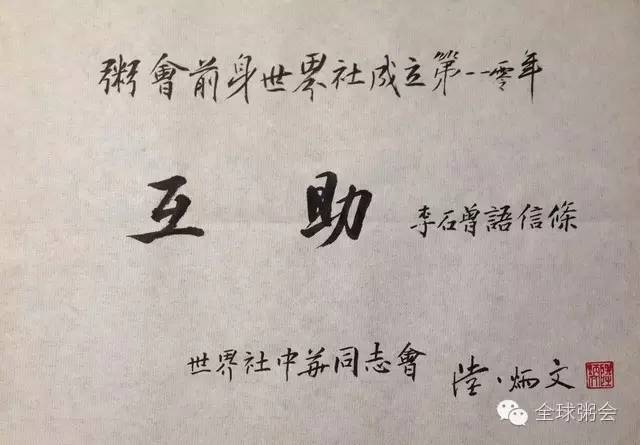 粥會前身世界社成立第一一零年
互助 李石曾語信條
世界社中華同志會 陸、炳文
全球粥会